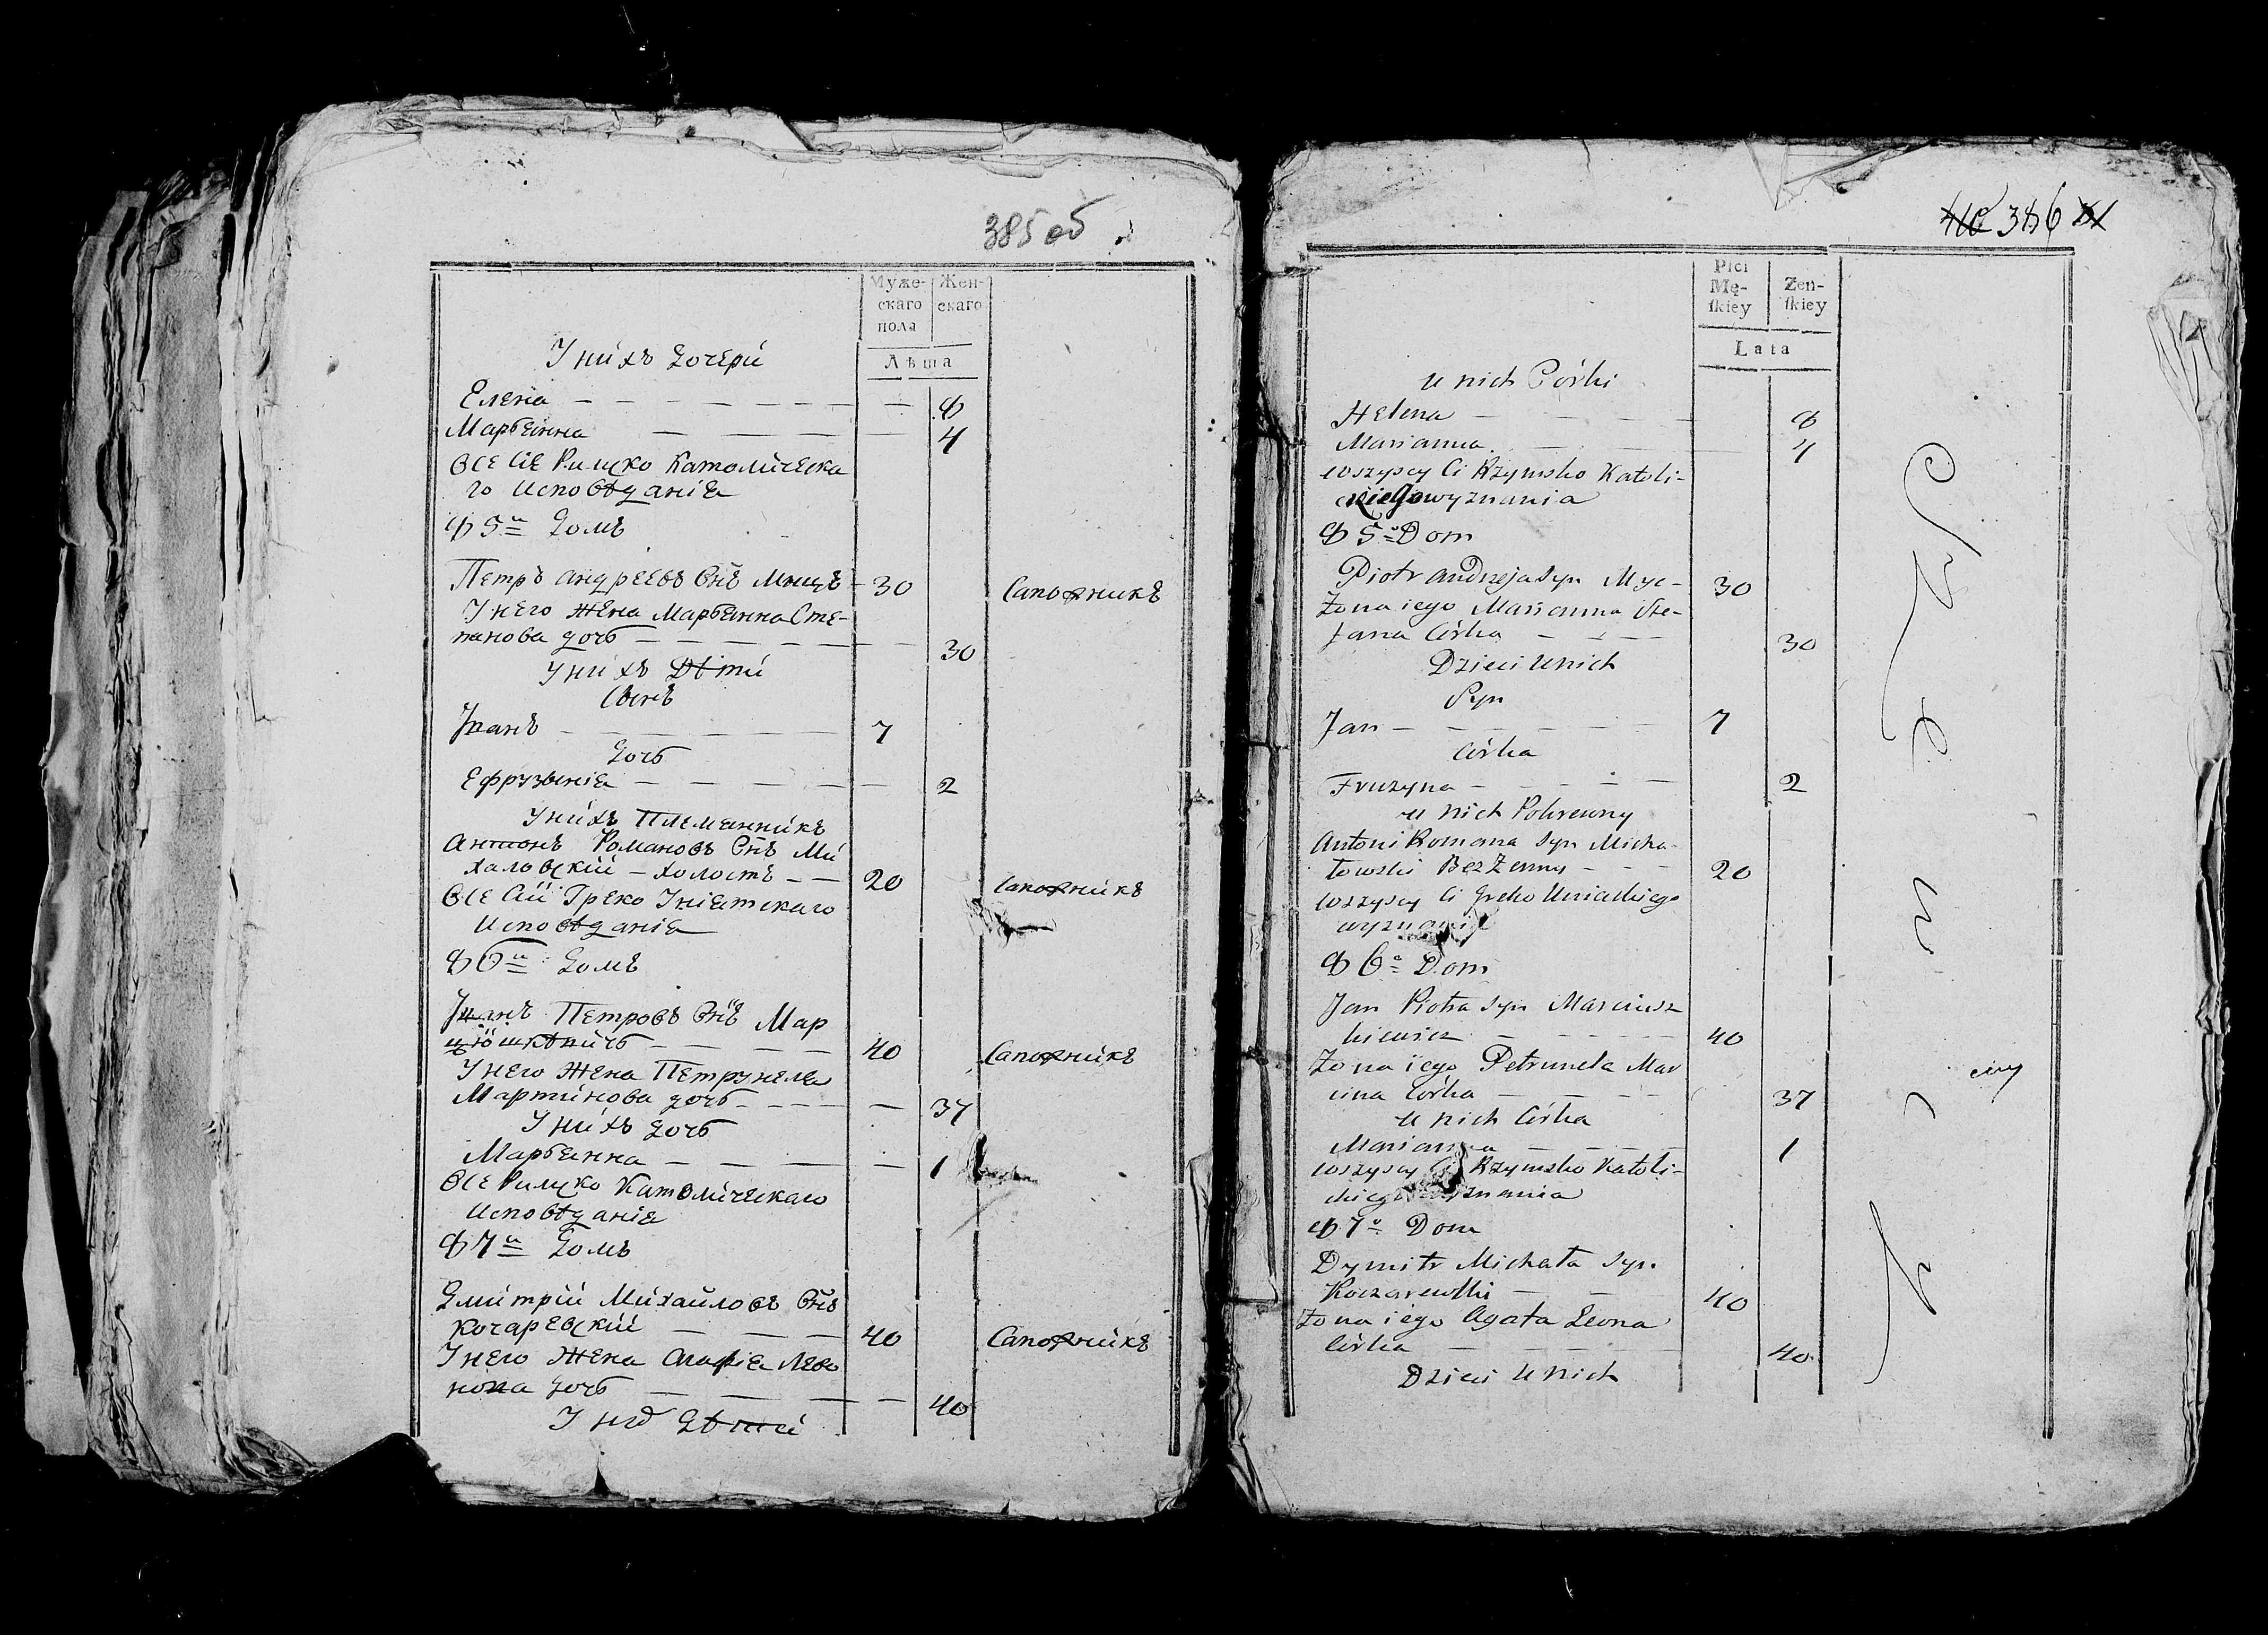 385 об
Муже-
скаго
пола
Жен-
скаго
Лѣта
У нихъ дочери
Елена — — — — — — — — 8
Марьянна — — — — — 4
Все сіе Римско Католическа
го Исповѣданія
85й Домъ
Петръ Андреевъ Снъ Мыцъ — 30 Сапожникъ
У него жена Марьянна Сте-
панова дочь — — — — — — 30
У нихъ Дѣти
Сынъ
Иванъ — — — — — — 7
Дочь
Ефрузынія — — — — — — 2
У нихъ Племянникъ
Антонъ Романовъ Снъ Ми
хальвскій — холостъ — — 20 Сапожникъ
Все Сіи Греко Уніятскаго
Исповѣданія
86й Домъ
Иванъ Петровъ Снъ Мар
— — — — 40 Сапожникъ
У него жена Петрунеля
Мартинова дочь — — — — — 37
У нихъ дочь
Марьянна — — — — 1
Все Римско Католическаго
Исповѣданія
87й Домъ
Дмитрій Михайловъ Снъ
Кочаревскій — — — 40 Сапожникъ
У него жена Агафія Лево
нова дочь — — — — — 40
У нихъ Дѣти
386
Płci
Mę-
ſkiey
Zen-
ſkiey
Lata
u nich Córki
Helena — — — — 8
Marianna — — 4
wszyscy Ci Rzymsko Katoli-
ckiego wyznania
85o Dom
Piotr Andrzeja syn Myc — 30
Żona iego Marianna Ste-
fana Córka — — — 30
Dzieci u nich
Syn
Jan — — — — — — 7
Córka
Fruzyna — — — — — 2
u nich Pokrewny
Antoni Romana syn Micha-
łowski Bez Żenny — — — 20
wszyscy Ci Greko Uniackiego
wyznania
86o Dom
Jan Piotra syn Marciusz
kiewicz — — — — — 40
Żona iego Petrunela Mar
cina Córka — — — — 37
u nich Córka
Marianna — — — — 1
wszyscy Ci Rzymsko Katoli-
ckiego wyznania
87o Dom
Dymitr Michała syn
Koczarewſki — — 40
Żona iego Agata Leona
Córka — — — — — 40
Dzieci u nich